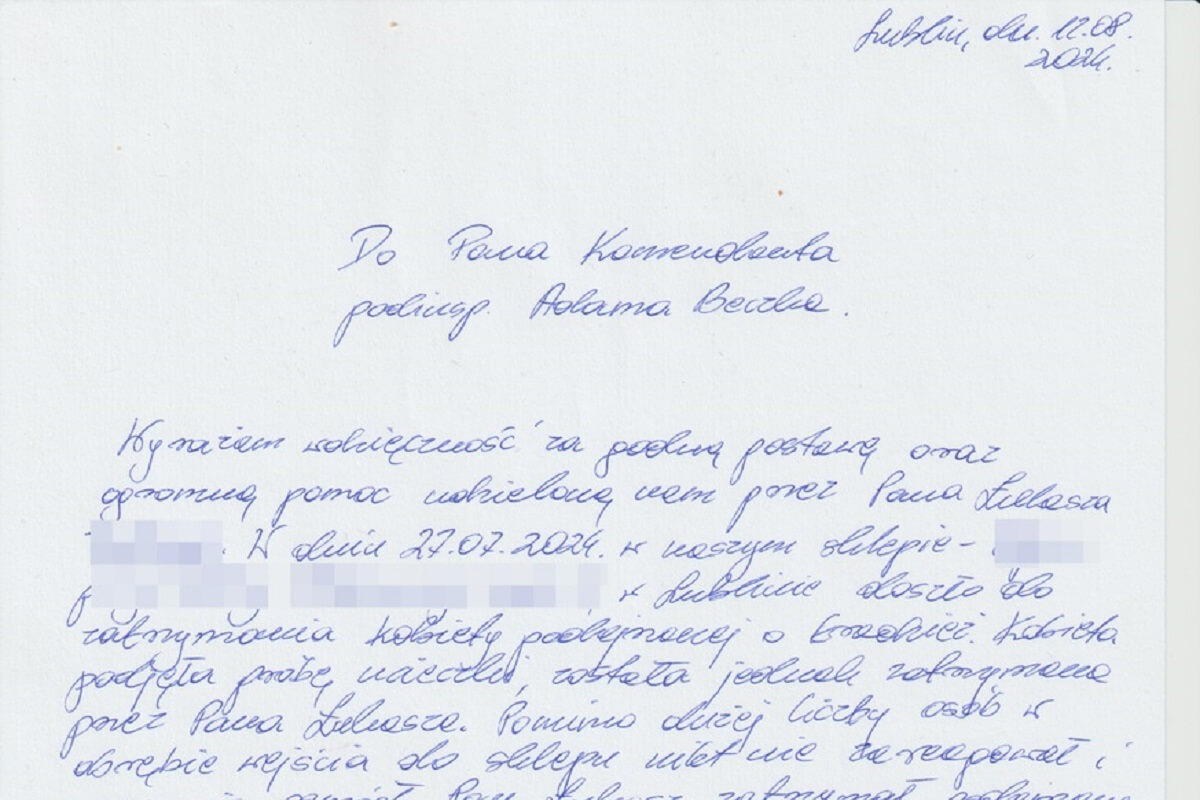 Lublin, dn. 12.08.
2024.
Do Pana Komendanta
podinsp. Adama Beczka.
Wyrażam wdzięczność za godną postawę oraz
ogromną pomoc udzieloną nam przez Pana Łukasza
. W dniu 27.07.2024. w naszym sklepie -
w Lublinie doszło do
zatrzymania kobiety podejrzanej o kradzież. Kobieta
podjęła próbę ucieczki, została jednak zatrzymana
przez Pana Łukasza. Pomimo dużej liczby osób w
obrębie wejścia do sklepu nikt nie zareagował i
Pan Łukasz zatrzymał